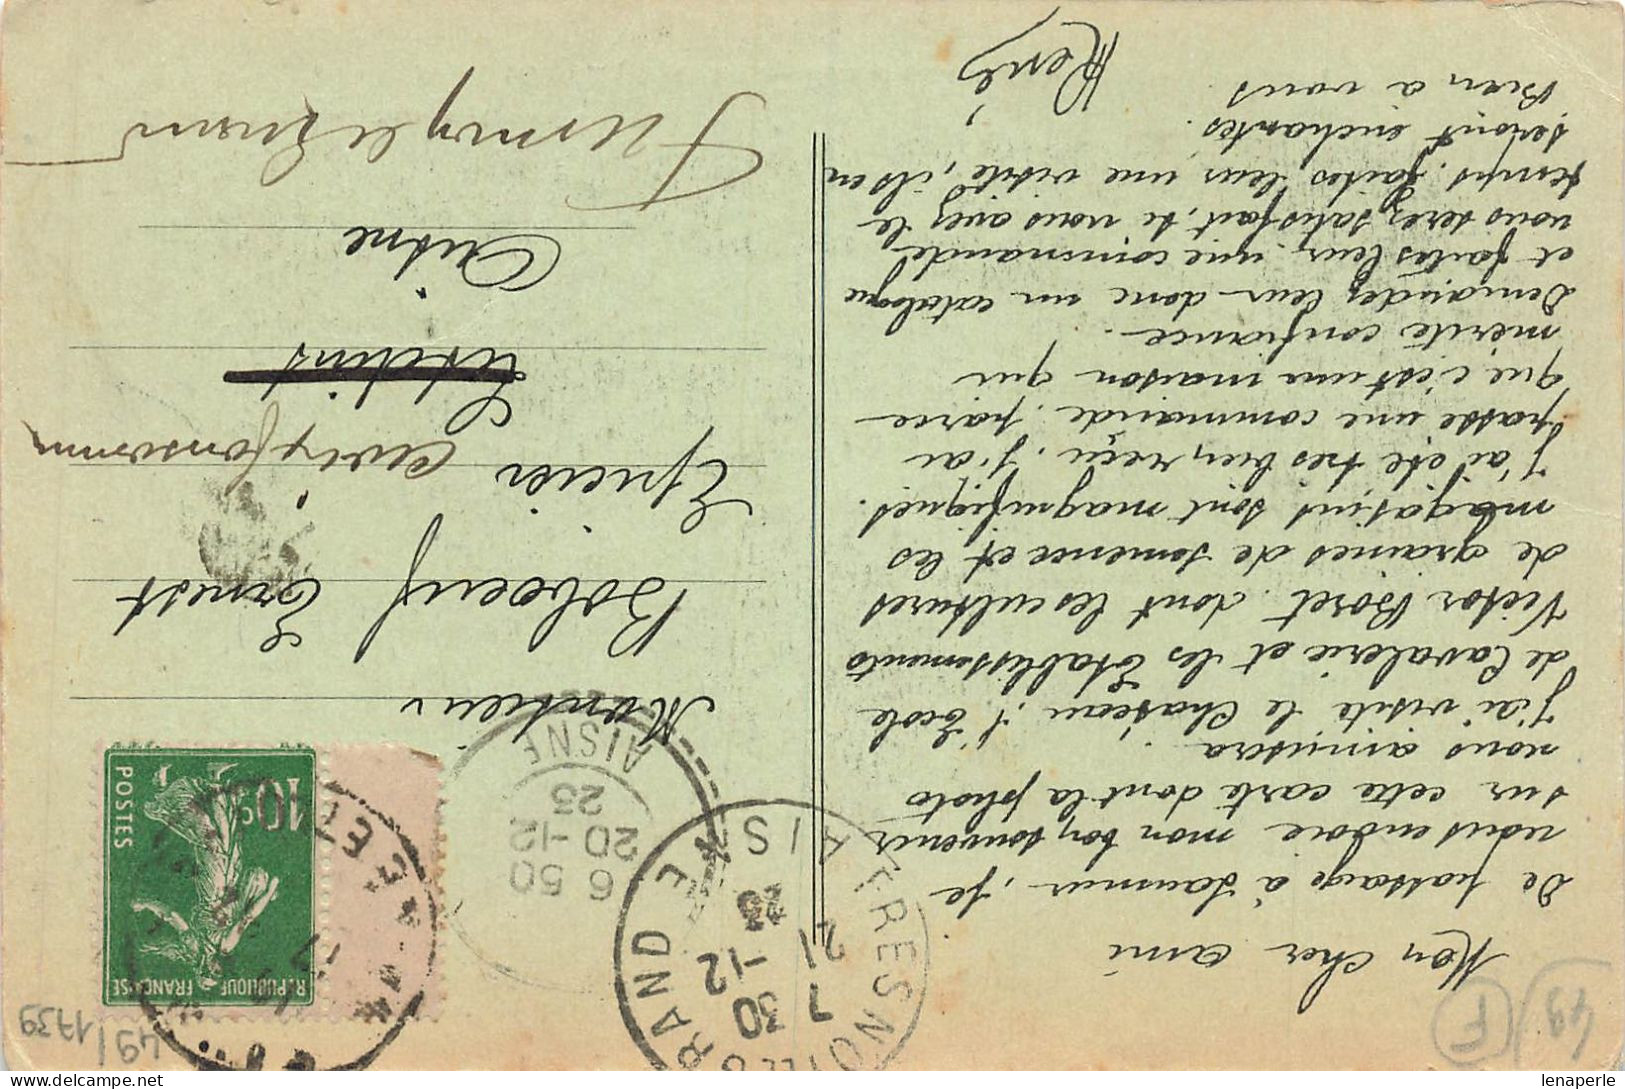 Mon Cher ami
De passage à Saumur, je
vous envoie mon bon souvenir
sur cette carte dont la photo
vous amusera.
J'ai visité le Chateau, l'Ecole
de Cavalerie et les Etablissements
Victor Boret dont les cultures
de graines de semence et les
magasins sont magnifiques.
J'ai été très bien reçu, j'ai
passé une commande parce
que c'est une maison qui
mérite confiance.
Demandez leur donc un catalogue
et faites leur une commande
vous serez satisfait, si vous avez le
temps, faites leur une visite, ils en
seront enchantés.
Bien à vous
René
Monsieur
Boboeuf Ernest
Epicier
Lesdins
Aisne
REPUBLIQUE FRANÇAISE
10c
POSTES
6 50
20-12
23
AISNE
FRESNOY LE GRAND
AISNE
7 30
21-12
23
49
F
49/1739
lenaperle